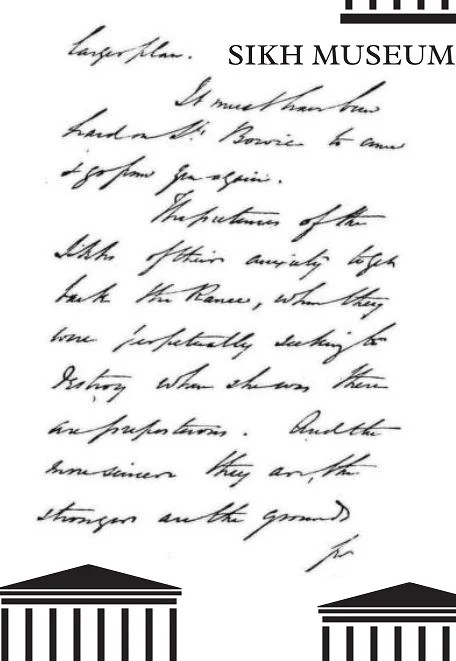 larger plan.
SIKH MUSEUM
It must have been
hard on Dr. Bowie to come
& go from you again.
The pretences of the
Sikhs of their anxiety to get
back the Ranee, when they
were perpetually seeking to
destroy when she was there
are preposterous. And the
more sincere they are, the
stronger are the grounds
for